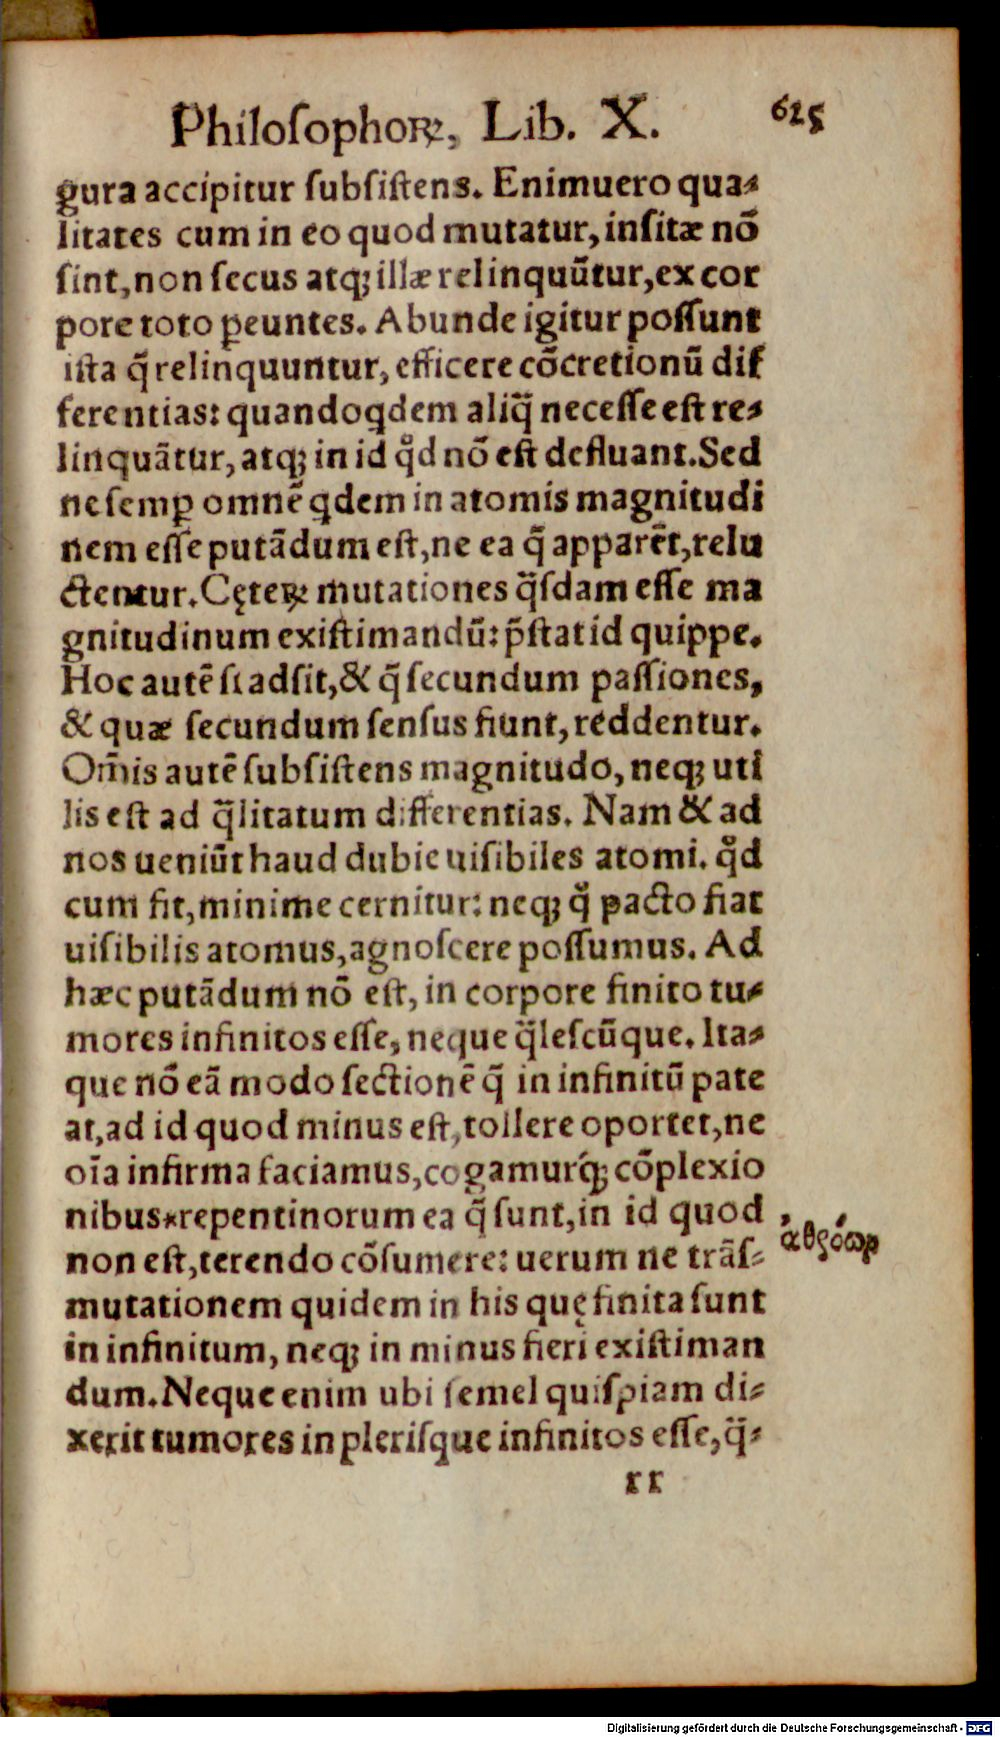 Philosophoꝝ, Lib. X. 625
gura accipitur ſubſiſtens. Enimuero qua⸗
litates cum in eo quod mutatur, inſitæ nō
ſint, non ſecus atq; illæ relinquūtur, ex cor
pore toto ꝑeuntes. Abunde igitur poſſunt
iſta q̃ relinquuntur, efficere cōcretionū dif
ferentias: quandoqdem aliq̃ neceſſe eſt re⸗
linquātur, atq; in id qͦd nō eſt defluant. Sed
ne ſemꝑ omnē qdem in atomis magnitudi
nem eſſe putādum eſt, ne ea q̃ apparēt, relu
ctentur. Cęteꝝ mutationes q̃ſdam eſſe ma
gnitudinum exiſtimandū: p̃ſtat id quippe.
Hoc autē ſi adſit, & q̃ ſecundum paſſiones,
& quæ ſecundum ſenſus fiunt, reddentur.
Om̄is autē ſubſiſtens magnitudo, neq; uti
lis eſt ad q̃litatum differentias. Nam & ad
nos ueniūt haud dubie uiſibiles atomi. qͦd
cum fit, minime cernitur: neq; qͦ pacto fiat
uiſibilis atomus, agnoſcere poſſumus. Ad
hæc putādum nō eſt, in corpore finito tu⸗
mores infinitos eſſe, neque q̃leſcūque. Ita⸗
que nō eā modo ſectionē q̃ in infinitū pate
at, ad id quod minus eſt, tollere oportet, ne
oīa infirma faciamus, cogamurq́; cōplexio
nibus*repentinorum ea q̃ ſunt, in id quod
ἀθρόων
non eſt, terendo cōſumere: uerum ne trāſ⸗
mutationem quidem in his quę finita ſunt
in infinitum, neq; in minus fieri exiſtiman
dum. Neque enim ubi ſemel quiſpiam di⸗
xerit tumores in pleriſque infinitos eſſe, q̃⸗
rr
Digitalisierung gefördert durch die Deutsche Forschungsgemeinschaft - DFG